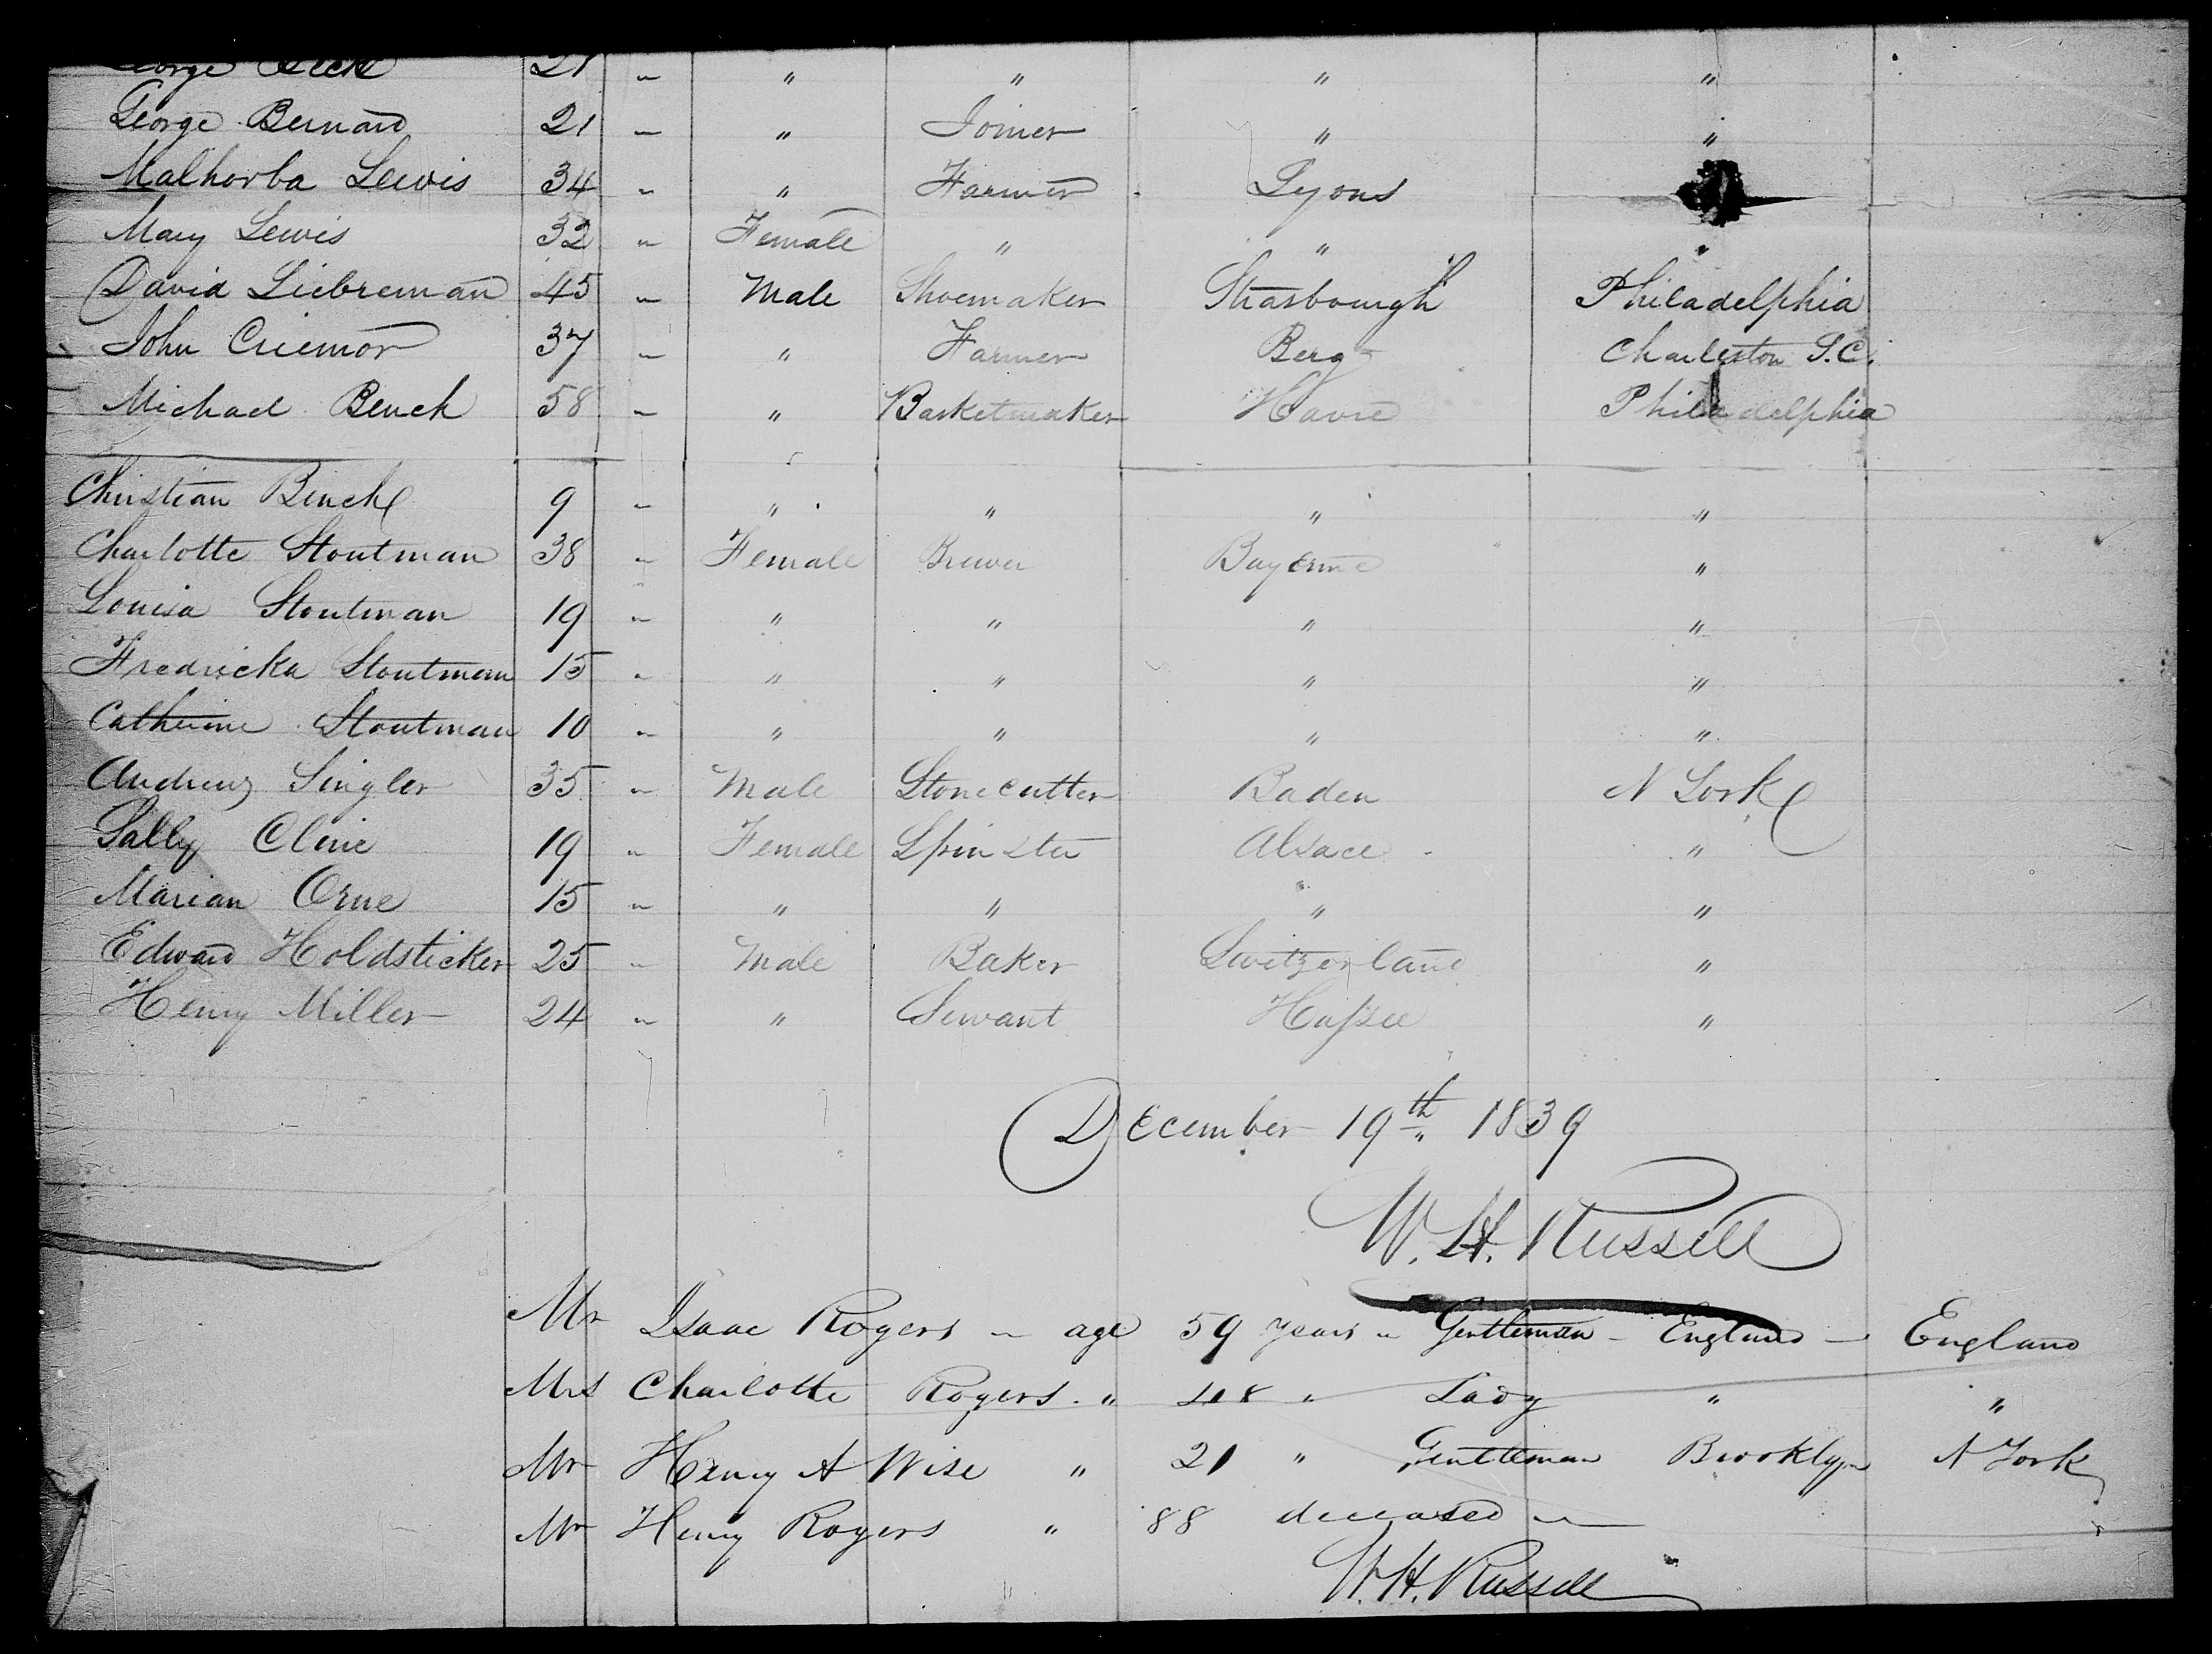 George 21 " " " " "
George Bernard 21 " " Joiner " "
Malhorba Lewis 34 " " Farmer Lyons
Mary Lewis 32 " Female " " "
David Liebreman 45 " Male Shoemaker Strasbourgh Philadelphia
John Criemor 37 " " Farmer Berg Charleston S.C.
Michael Benck 58 " " Basketmaker Havre Philadelphia
Christian Benck 9 " " " " "
Charlotte Stoutman 38 " Female Brewer Bayerne "
Louisa Stoutman 19 " " " " "
Fredricka Stoutman 15 " " " " "
Catherine Stoutman 10 " " " " "
Andrew Singler 35 " Male Stonecutter Baden N York
Sally Cline 19 " Female Spinster Alsace "
Marian Orne 15 " " " " "
Edward Holdsticker 25 " Male Baker Switzerland "
Henry Miller 24 " " Servant "
December 19th 1839
W. H. Russell
Mr Isaac Rogers " age 59 years " Gentleman - England - England
Mrs Charlotte Rogers " 48 " Lady " "
Mr Henry A Wise " 21 " Gentleman Brooklyn N York
Mr Henry Rogers " 88 deceased
W. H. Russell